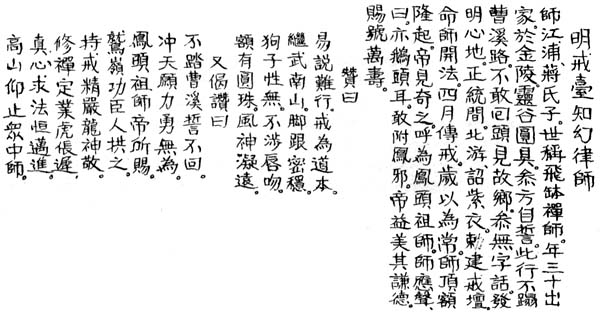 明戒臺知幻律師
師江浦蔣氏子。世稱飛缽禪師。年三十出
家於金陵。靈谷圓具。叅方自誓。此行不蹋
曹溪路。不敢回頭見故鄉。叅無字話。發
明心地。正統間。北游。詔紫衣。勅建戒壇。
命師開法。四月傳戒。歲以為常。師頂額
隆起。帝見奇之。呼為鳳頭祖師。師應聲
曰。亦鵝頭耳。敢附鳳耶。帝益美其謙德。
賜號萬壽。
贊曰
易說難行。戒為道本。
繼武南山。腳跟密穩。
狗子性無。不涉唇吻。
額有圓珠。風神凝遠。
又偈讚曰
不踏曹溪誓不回。
冲天願力勇無為。
鳳頭祖師帝所賜。
鷲嶺功臣人拱之。
持戒精嚴龍神敬。
修禪定業虎倀遲。
真心求法恒邁進。
高山仰止眾中師。